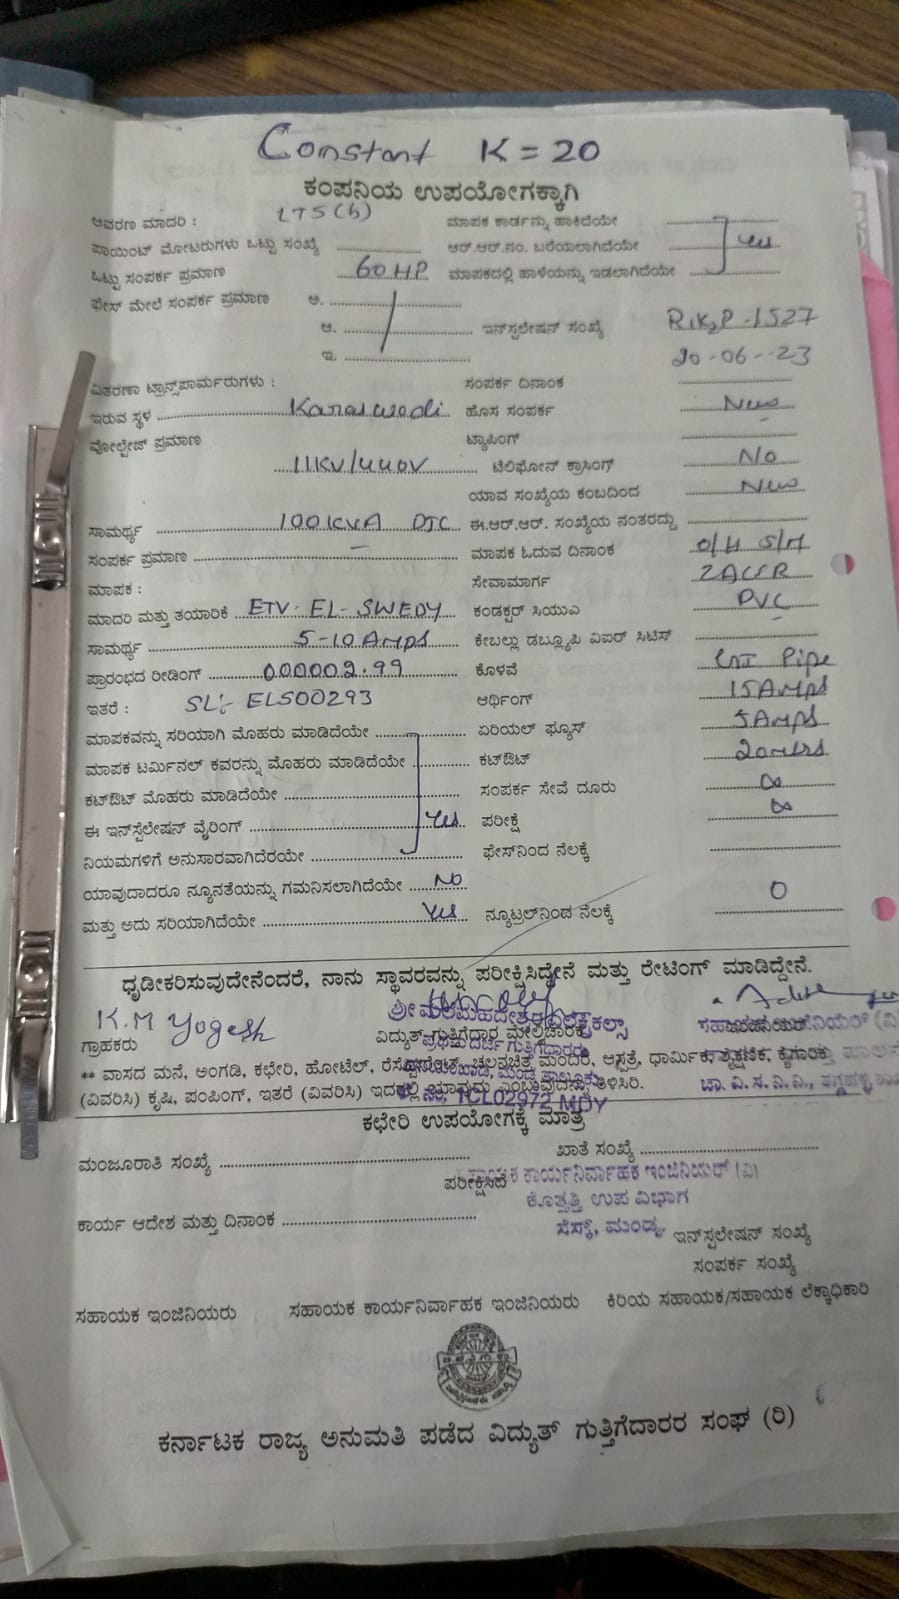 Constant K = 20
ಕಂಪನಿಯ ಉಪಯೋಗಕ್ಕಾಗಿ
ಆವರಣ ಮಾದರಿ : LT5(b) ಮಾಪಕ ಕಾರ್ಡನ್ನು ಹಾಕಿದೆಯೇ
ಪಾಯಿಂಟ್ ಮೋಟರುಗಳು ಒಟ್ಟು ಸಂಖ್ಯೆ ಆರ್.ಆರ್.ನಂ. ಬರೆಯಲಾಗಿದೆಯೇ Yes
ಒಟ್ಟು ಸಂಪರ್ಕ ಪ್ರಮಾಣ 60 HP ಮಾಪಕದಲ್ಲಿ ಹಾಳೆಯನ್ನು ಇಡಲಾಗಿದೆಯೇ
ಫೇಸ್ ಮೇಲೆ ಸಂಪರ್ಕ ಪ್ರಮಾಣ ಅ.
ಆ. ಇನ್‌ಸ್ಪಲೇಷನ್ ಸಂಖ್ಯೆ RK2P-1527
ಇ. 20-06-23
ವಿತರಣಾ ಟ್ರಾನ್ಸ್‌ಫಾರ್ಮರುಗಳು : ಸಂಪರ್ಕ ದಿನಾಂಕ
ಇರುವ ಸ್ಥಳ ಹೊಸ ಸಂಪರ್ಕ New
ವೋಲ್ಟೇಜ್ ಪ್ರಮಾಣ ಟ್ಯಾಪಿಂಗ್
11KV/440V ಟಿಲಿಫೋನ್ ಕ್ರಾಸಿಂಗ್ No
ಯಾವ ಸಂಖ್ಯೆಯ ಕಂಬದಿಂದ New
ಸಾಮರ್ಥ್ಯ 100 KVA DTC ಈ.ಆರ್.ಆರ್. ಸಂಖ್ಯೆಯ ನಂತರದ್ದು
ಸಂಪರ್ಕ ಪ್ರಮಾಣ ಮಾಪಕ ಓದುವ ದಿನಾಂಕ O/H S/M
ಮಾಪಕ : ಸೇವಾಮಾರ್ಗ
ಮಾದರಿ ಮತ್ತು ತಯಾರಿಕೆ ETV- EL- SWEDY ಕಂಡಕ್ಟರ್ ಸಿಯುಎ PVC
ಸಾಮರ್ಥ್ಯ 5-10 AMPS ಕೇಬಲ್ಲು ಡಬ್ಲ್ಯೂಪಿ ವಿಐರ್ ಸಿಟಿಸ್
ಪ್ರಾರಂಭದ ರೀಡಿಂಗ್ 000002.99 ಕೊಳವೆ Pipe
ಇತರೆ : SL:- ELS00293 ಆರ್ಥಿಂಗ್ 15 AMPS
ಮಾಪಕವನ್ನು ಸರಿಯಾಗಿ ಮೊಹರು ಮಾಡಿದೆಯೇ ಏರಿಯಲ್ ಫ್ಯೂಸ್ 5 AMPS
ಮಾಪಕ ಟರ್ಮಿನಲ್ ಕವರನ್ನು ಮೊಹರು ಮಾಡಿದೆಯೇ ಕಟ್‌ಔಟ್ 20 mtrs
ಕಟ್‌ಔಟ್ ಮೊಹರು ಮಾಡಿದೆಯೇ ಸಂಪರ್ಕ ಸೇವೆ ದೂರು ∞
ಈ ಇನ್‌ಸ್ಪೆಲೇಷನ್ ವೈರಿಂಗ್ Yes ಪರೀಕ್ಷೆ ∞
ನಿಯಮಗಳಿಗೆ ಅನುಸಾರವಾಗಿದೆರಯೇ ಫೇಸ್‌ನಿಂದ ನೆಲಕ್ಕೆ
ಯಾವುದಾದರೂ ನ್ಯೂನತೆಯನ್ನು ಗಮನಿಸಲಾಗಿದೆಯೇ NO
ಮತ್ತು ಅದು ಸರಿಯಾಗಿದೆಯೇ Yes ನ್ಯೂಟ್ರಲ್‌ನಿಂದ ನೆಲಕ್ಕೆ 0
ಧೃಡೀಕರಿಸುವುದೇನೆಂದರೆ, ನಾನು ಸ್ಥಾವರವನ್ನು ಪರೀಕ್ಷಿಸಿದ್ದೇನೆ ಮತ್ತು ರೇಟಿಂಗ್ ಮಾಡಿದ್ದೇನೆ.
K.M Yogesh
ಗ್ರಾಹಕರು ವಿದ್ಯುತ್ ಗುತ್ತಿಗೆದಾರ ಮೇಲ್ವಿಚಾರಕ
** ವಾಸದ ಮನೆ, ಅಂಗಡಿ, ಕಛೇರಿ, ಹೋಟೆಲ್, ರೆಸ್ಟೋರೆಂಟ್, ಚಲನಚಿತ್ರ ಮಂದಿರ, ಆಸ್ಪತ್ರೆ, ಧಾರ್ಮಿಕ, ಶೈಕ್ಷಣಿಕ, ಕೈಗಾರಿಕ
(ವಿವರಿಸಿ) ಕೃಷಿ, ಪಂಪಿಂಗ್, ಇತರೆ (ವಿವರಿಸಿ) ಇದರಲ್ಲಿ ಯಾವುದು ಎಂಬುವುದನ್ನು ತಿಳಿಸಿರಿ.
1CL02972 MDY
ಕಛೇರಿ ಉಪಯೋಗಕ್ಕೆ ಮಾತ್ರ
ಮಂಜೂರಾತಿ ಸಂಖ್ಯೆ ಖಾತೆ ಸಂಖ್ಯೆ
ಪರೀಕ್ಷಿಸಿದೆ ಸಹಾಯಕ ಕಾರ್ಯನಿರ್ವಾಹಕ ಇಂಜಿನಿಯರ್ (ವಿ)
ಕೊತ್ತತ್ತಿ ಉಪ ವಿಭಾಗ
ಕಾರ್ಯ ಆದೇಶ ಮತ್ತು ದಿನಾಂಕ ಸೆಸ್ಕ್, ಮಂಡ್ಯ. ಇನ್‌ಸ್ಪಲೇಷನ್ ಸಂಖ್ಯೆ
ಸಂಪರ್ಕ ಸಂಖ್ಯೆ
ಸಹಾಯಕ ಇಂಜಿನಿಯರು ಸಹಾಯಕ ಕಾರ್ಯನಿರ್ವಾಹಕ ಇಂಜಿನಿಯರು ಕಿರಿಯ ಸಹಾಯಕ/ಸಹಾಯಕ ಲೆಕ್ಕಾಧಿಕಾರಿ
ಕರ್ನಾಟಕ ರಾಜ್ಯ ಅನುಮತಿ ಪಡೆದ ವಿದ್ಯುತ್ ಗುತ್ತಿಗೆದಾರರ ಸಂಘ (ರಿ)